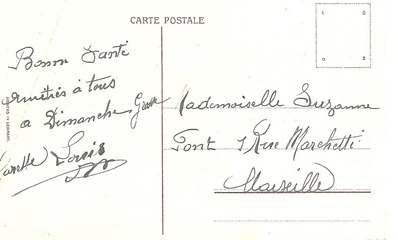 CARTE POSTALE
1 0
0 3
Bonne Santé
Amitiés à tous
a Dimanche
Louis
Mademoiselle Suzanne
Font 1 Rue Marchetti
Marseille